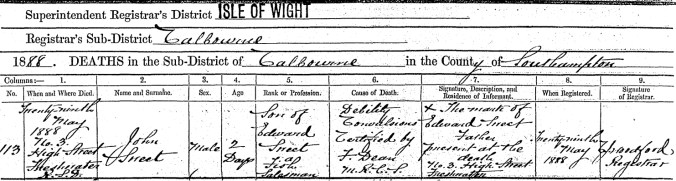 Superintendent Registrar's District ISLE OF WIGHT
Registrar's Sub-District Calbourne
1888. DEATHS in the Sub-District of Calbourne in the County of Southampton
Columns:— 1. 2. 3. 4. 5. 6. 7. 8. 9.
No. When and Where Died. Name and Surname. Sex. Age Rank or Profession. Cause of Death. Signature, Description, and Residence of Informant. When Registered. Signature of Registrar.
113
Twenty ninth
May
1888
No. 3.
High Street
Freshwater
R.S.D.
John
Sweet
Male
2
Days
Son of
Edward
Sweet
a
Salesman
Debility
Convulsions
Certified by
F. Dean
M.R.C.S.
X The mark of
Edward Sweet
Father
present at the
death
No. 3. High Street
Freshwater
Twenty ninth
May
1888
Registrar